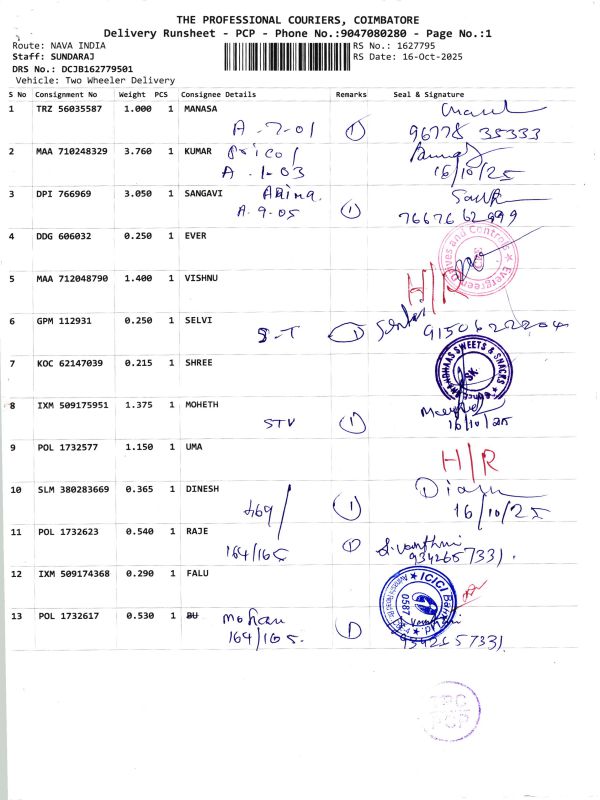 THE PROFESSIONAL COURIERS, COIMBATORE
Delivery Runsheet - PCP - Phone No.:9047080280 - Page No.:1
Route: NAVA INDIA RS No.: 1627795
Staff: SUNDARAJ RS Date: 16-Oct-2025
DRS No.: DCJB162779501
Vehicle: Two Wheeler Delivery
S No Consignment No Weight PCS Consignee Details Remarks Seal & Signature
1 TRZ 56035587 1.000 1 MANASA
A-7-01 1 96778 35333
2 MAA 710248329 3.760 1 KUMAR
A.1-03 16/10/25
3 DPI 766969 3.050 1 SANGAVI
A.9-05 1 76676 62999
4 DDG 606032 0.250 1 EVER
5 MAA 712048790 1.400 1 VISHNU H/R
6 GPM 112931 0.250 1 SELVI
S-T 1 9150622204
7 KOC 62147039 0.215 1 SHREE
SWEETS & SNACKS
8 IXM 509175951 1.375 1 MOHETH
STV 1 16/10/25
9 POL 1732577 1.150 1 UMA H/R
10 SLM 380283669 0.365 1 DINESH
469/ 1 16/10/25
11 POL 1732623 0.540 1 RAJE
164/165 1 9342657331.
12 IXM 509174368 0.290 1 FALU
ICICI Bank Ltd.
0587
13 POL 1732617 0.530 1 BU Mohan
164/165. 1 9342657331
TPC
PCP